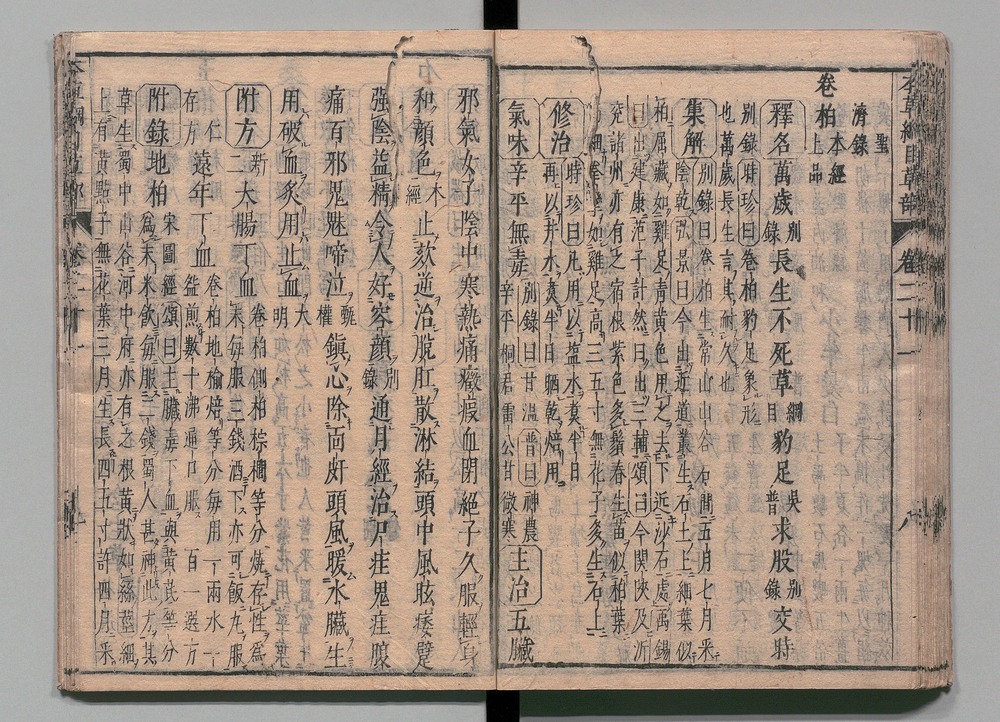 濟錄 聖
卷柏 本經上品
釋名 萬歲 別錄 長生不死草 綱目 豹足 吳普 求股 別錄 交時
別錄 時珍曰卷柏豹足象形
也萬歲長生言其耐久也
集解 別錄曰卷柏生常山山谷石間五月七月采
陰乾弘景曰今出近道叢生石土上細葉似
柏屈藏如雞足青黃色用之去下近沙石處禹錫
曰出建康范子計然曰出三輔頌曰今關陝及沂
兖諸州亦有之宿根紫色多鬚春生苗似柏葉
而細拳如雞足高三五寸無花子多生石上
修治 時珍曰凡用以鹽水煮半日
再以井水煮半日晒乾焙用
氣味 辛平無毒 別錄曰甘溫普曰神農
辛平桐君雷公甘微寒 主治 五臟
邪氣女子陰中寒熱痛癥瘕血閉絕子久服輕身
和顏色 本經 止欬逆治脫肛散淋結頭中風眩痿躄
強陰益精令人好容顏 別錄 通月經治尸疰鬼疰腹
痛百邪鬼魅啼泣 甄權 鎮心除面皯頭風暖水臟生
用破血炙用止血 大明
附方 新二 大腸下血 卷柏側柏棕櫚等分燒存性爲
末每服三錢酒下亦可飯丸服
仁存方 遠年下血 卷柏地榆焙等分每用一兩水一
盌煎數十沸通口服 百一選方
附錄 地柏 宋圖經頌曰主臟毒下血與黃芪等分
爲末米飲每服二錢蜀人甚神此方其
草生蜀中山谷河中府亦有之根黃狀如絲莖細
上有黃點子無花葉三月生長四五寸許四月采